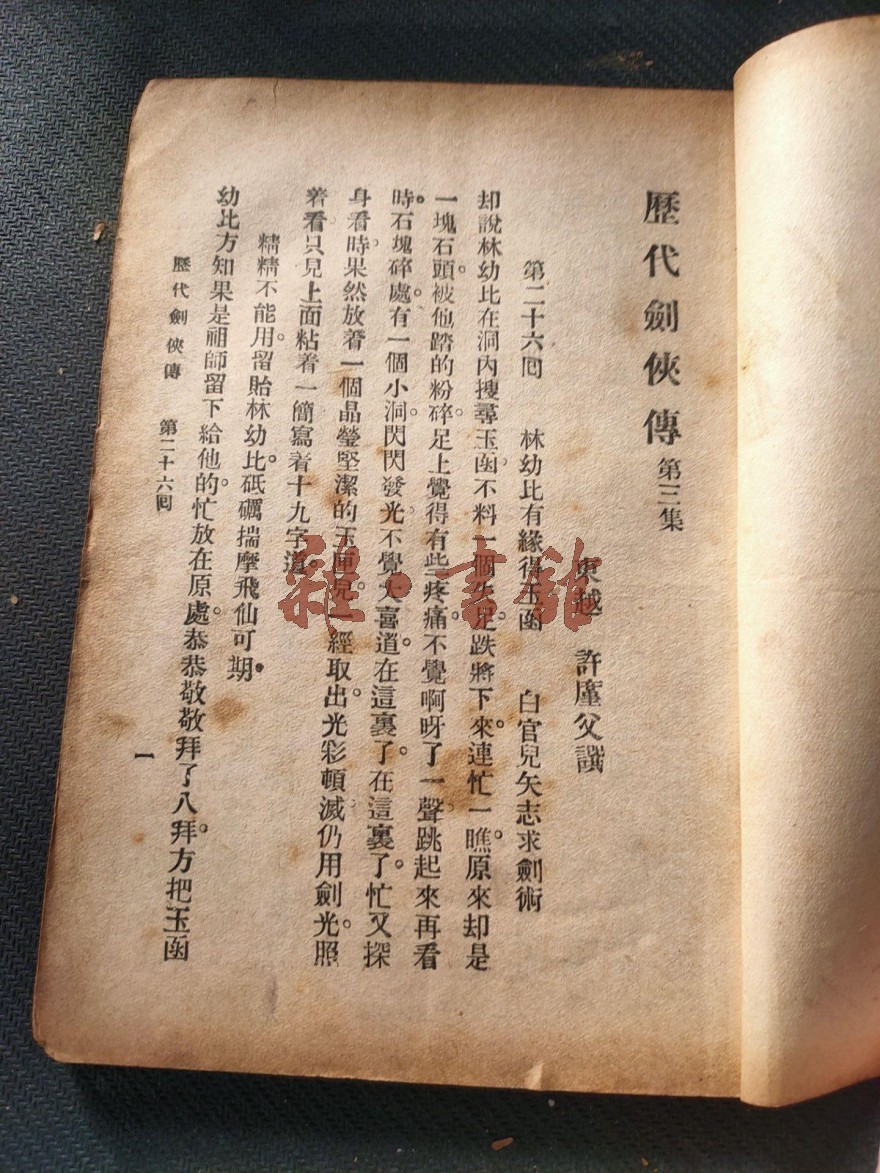 歷代劍俠傳 第三集
東越 許廑父譔
第二十六囘 林幼比有緣得玉函 白官兒矢志求劍術
却說林幼比在洞內搜尋玉函。不料一個失足。跌將下來。連忙一瞧。原來却是
一塊石頭。被他踏的粉碎。足上覺得有些疼痛。不覺啊呀了一聲。跳起來再看
時。石塊碎處。有一個小洞。閃閃發光。不覺大喜道。在這裏了。在這裏了。忙又探
身看時。果然放着一個晶瑩堅潔的玉匣兒。一經取出。光彩頓滅。仍用劍光。照
着看。只見上面粘着一簡。寫着十九字道。
精精不能用。留貽林幼比。砥礪揣摩。飛仙可期。
幼比方知果是祖師留下給他的。忙放在原處。恭恭敬敬。拜了八拜。方把玉函
歷代劍俠傳 第二十六囘 一
雜·書館